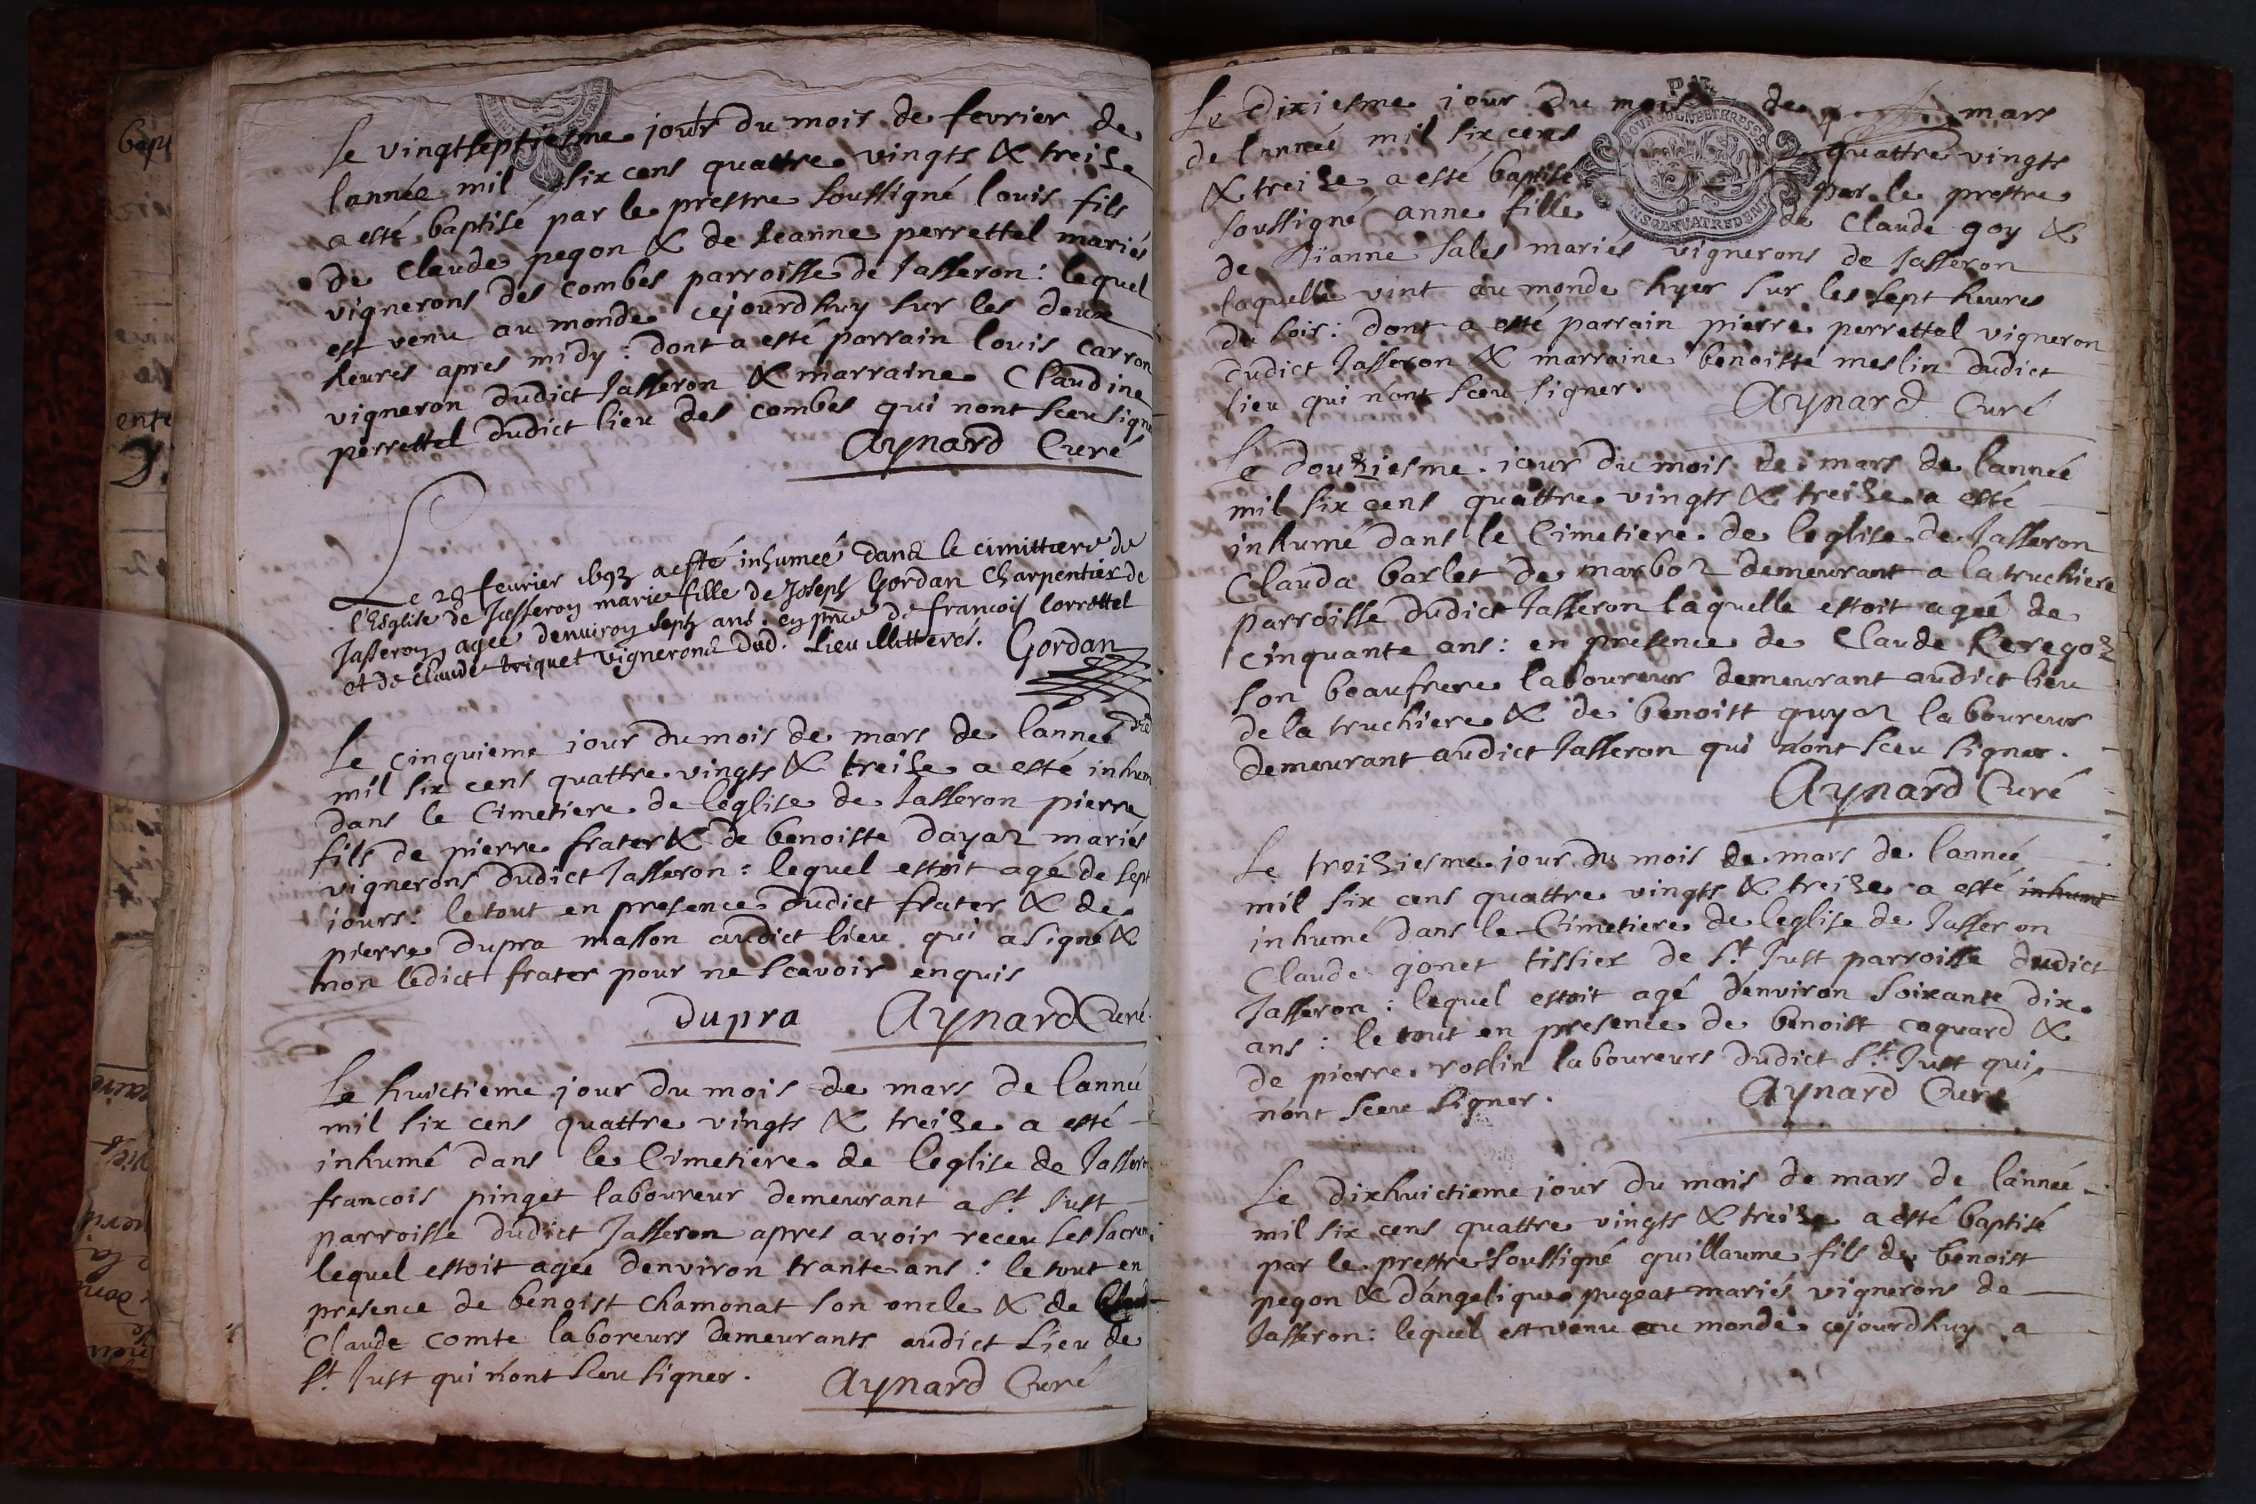 Le vingtseptiesme jour du mois de fevrier de
lannée mil six cens quattre vingts & treize
a esté baptisé par le prestre soussigné louis fils
de Claude pegon & de Jeanne perrettel mariés
vignerons des combes parroisse de Jasseron : lequel
est venu au monde cejourdhuy sur les deux
heures apres midy : dont a esté parrain louis carron
vigneron dudict Jasseron & marraine Claudine
perrettel dudict lieu des combes qui nont sceu signe
Aynard Curé
Le 28 feurier 1693 a esté inhumeé dans le cimittiere de
l'Esglise de Jasseron marie fille de Joseph Gordan Charpentier de
Jasseron agee denviron sept ans. en pnce de francois Corrottel
et de Claude triquet vignerons dud. Lieu illitterés. Gordan
Le cinquieme jour du mois de mars de lanneé
mil six cens quattre vingts & treize a esté inhum
dans le Cimetiere de leglise de Jasseron pierre
fils de pierre frater & de benoiste dayaz mariés
vignerons dudict Jasseron : lequel estoit agé de sept
jours : le tout en presence dudict frater & de
pierre dupra masson audict lieu qui a signé &
non ledict frater pour ne scavoir enquis
dupra Aynard Curé
Le huictieme jour du mois de mars de lanneé
mil six cens quattre vingts & treize a esté
inhumé dans le Cimetiere de leglise de Jassero
francois pinget laboureur demeurant a St Just
parroisse dudict Jasseron apres avoir receu ses sacrem
lequel estoit ageé denviron trante ans : le tout en
presence de benoist chamonat son oncle & de Claud
Claude comte laboreurs demeurants audict Lieu de
St Just qui n'ont sceu signer. Aynard Curé
Le dixiesme jour du mois de mars
de lannée mil six cens quattre vingts
& treize a esté baptisé par le prestre
soussigné anne fille de Claude goy &
de Dianne sales mariés vignerons de Jasseron
laquelle vint au monde hyer sur les sept heures
du soir : dont a esté parrain pierre perrettel vigneron
dudict Jasseron & marraine benoiste meslin dudict
lieu qui n'ont sceu signer. Aynard Curé
Le douziesme jour du mois de mars de lannée
mil six cens quattre vingts & treize a esté
inhumé dans le Cimetiere de leglise de Jasseron
Clauda barlet de marboz demeurant a la truchiere
parroisse dudict Jasseron laquelle estoit ageé de
cinquante ans : en presence de Claude Keregoz
son beaufrere laboureur demeurant audict lieu
de la truchiere & de benoist guyaz laboureur
demeurant audict Jasseron qui n'ont sceu signer.
Aynard Curé
Le troiziesme jour du mois de mars de lanneé
mil six cens quattre vingts & treize a esté inhumé
inhumé dans le Cimetiere de leglise de Jasseron
Claude gonet tissier de St Just parroisse dudict
Jasseron : lequel estoit agé denviron soixante dix
ans : le tout en presence de benoist caquard &
de pierre roslin laboureurs dudict St Just qui
n'ont sceu signer. Aynard Curé
Le dixhuictieme jour du mois de mars de lanneé
mil six cens quattre vingts & treize a esté baptisé
par le prestre soussigné guillaume fils de benoist
pegon & d'angelique pugeat mariés vignerons de
Jasseron : lequel est venu au monde cejourdhuy a